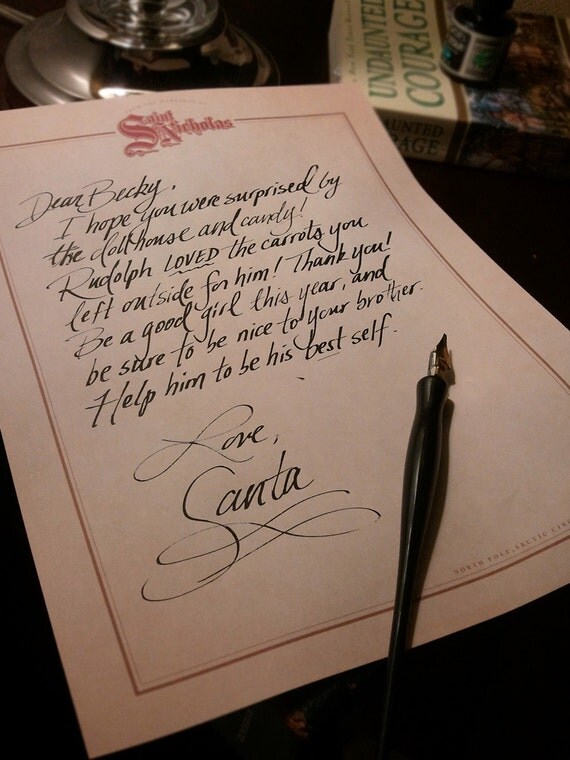 UNDAUNTED
COURAGE
AUNTED
AGE
Saint
Nicholas
Dear Becky,
I hope you were surprised by
the dollhouse and candy!
Rudolph LOVED the carrots you
left outside for him! Thank you!
Be a good girl this year, and
be sure to be nice to your brother.
Help him to be his best self.
Love,
Santa
NORTH POLE, ARCTIC